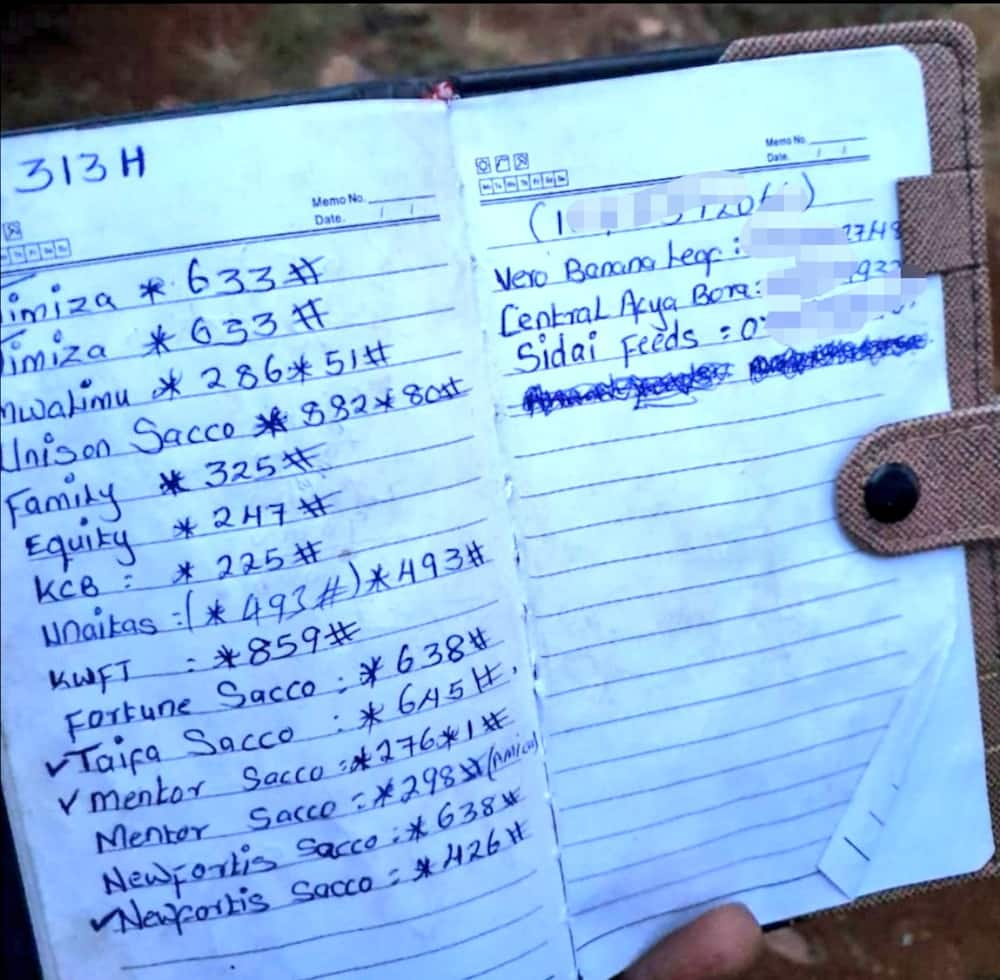 313H
Memo No.
Date. / /
imiza * 633#
imiza * 633#
mwalimu * 286*51#
Unison Sacco * 882*80#
Family * 325#
Equity * 247#
KCB : * 225#
Unaitas :(* 493#)*493#
KWFT : *859#
Fortune Sacco : * 638#
✓Taifa Sacco : * 645#.
✓mentor Sacco :*276*1#
Mentor Sacco : *298#
Newfortis Sacco : * 638#
✓Newfortis Sacco : * 426#
Memo No.
Date. / /
Mo Tu We Th Fr Sa Su
Vero Banana Leaf :
Central Akya Bora:
Sidai Feeds : 0